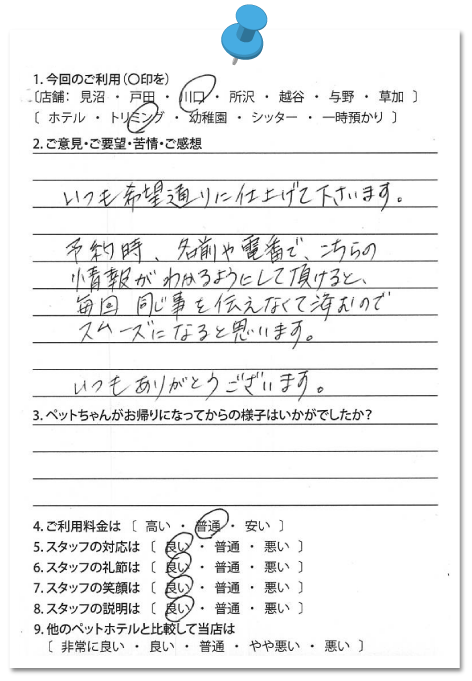 1. 今回のご利用(〇印を)
〔店舗: 見沼 ・ 戸田 ・ 川口 ・ 所沢 ・ 越谷 ・ 与野 ・ 草加 〕
〔 ホテル ・ トリミング ・ 幼稚園 ・ シッター ・ 一時預かり 〕
2. ご意見・ご要望・苦情・ご感想
いつも希望通りに仕上げて下さいます。
予約時、名前や電番で、こちらの
情報がわかるようにして頂けると、
毎回 同じ事を伝えなくて済むので
スムーズになると思います。
いつもありがとうございます。
3. ペットちゃんがお帰りになってからの様子はいかがでしたか?
4. ご利用料金は 〔 高い ・ 普通 ・ 安い 〕
5. スタッフの対応は 〔 良い ・ 普通 ・ 悪い 〕
6. スタッフの礼節は 〔 良い ・ 普通 ・ 悪い 〕
7. スタッフの笑顔は 〔 良い ・ 普通 ・ 悪い 〕
8. スタッフの説明は 〔 良い ・ 普通 ・ 悪い 〕
9. 他のペットホテルと比較して当店は
〔 非常に良い ・ 良い ・ 普通 ・ やや悪い ・ 悪い 〕